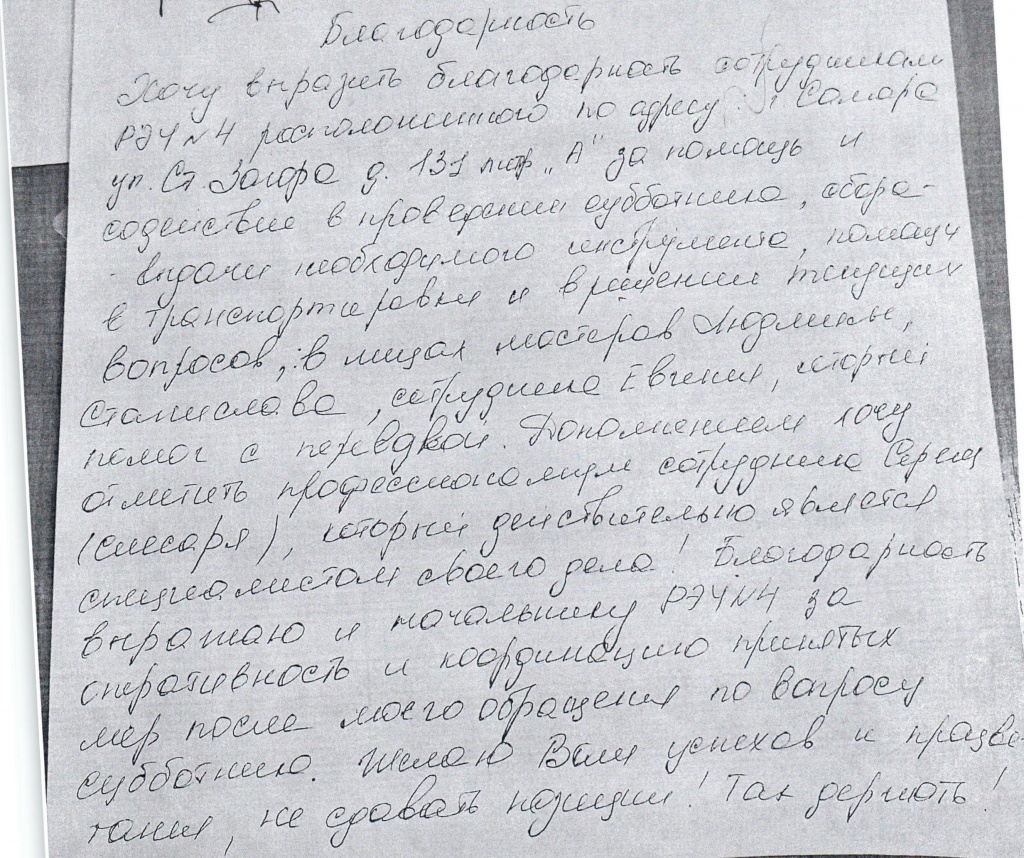 Благодарность
Хочу выразить благодарность сотрудникам
РЭУ №4 расположенного по адресу: г. Самара
ул. Ст. Загора д. 131 литр „А" за помощь и
содействие в проведении субботника, сбора-
- выдачи необходимого инструмента, помощи
в транспортировки и в решении текущих
вопросов, в лицах мастеров Людмилы,
Станислава, сотрудника Евгения, который
помог с перевозкой. Дополнением хочу
отметить профессионализм сотрудника Сергея
(слесаря), который действительно является
специалистом своего дела! Благодарность
выражаю и начальнику РЭУ №4 за
оперативность и координацию принятых
мер после моего обращения по вопросу
субботника. Желаю Вам успехов и процве-
тания, не сдавать позиции! Так держать!